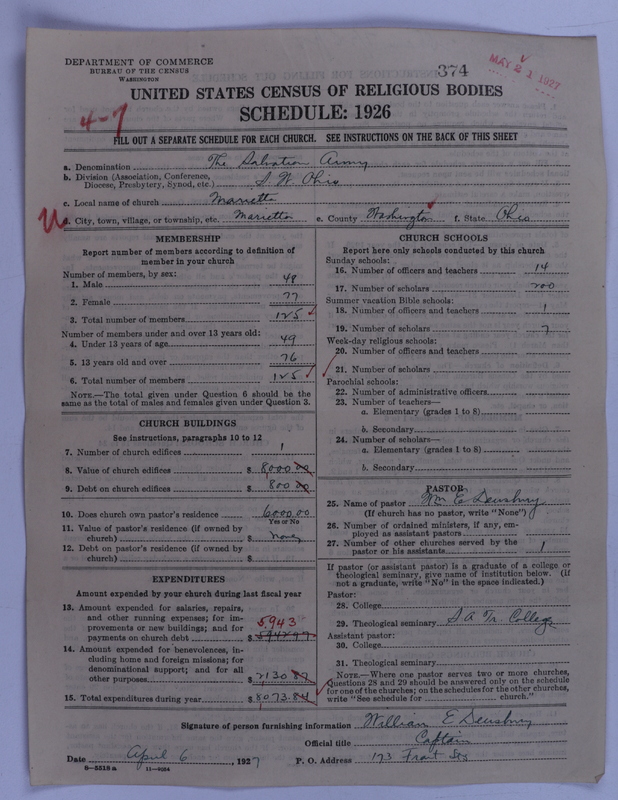 DEPARTMENT OF COMMERCE
BUREAU OF THE CENSUS
WASHINGTON
374
MAY 21 1927
UNITED STATES CENSUS OF RELIGIOUS BODIES
SCHEDULE: 1926
4-7
FILL OUT A SEPARATE SCHEDULE FOR EACH CHURCH. SEE INSTRUCTIONS ON THE BACK OF THIS SHEET
a. Denomination The Salvation Army
b. Division (Association, Conference, Diocese, Presbytery, Synod, etc.) S W Ohio
c. Local name of church Marietta
U
d. City, town, village, or township, etc. Marietta e. County Washington f. State Ohio
MEMBERSHIP
Report number of members according to definition of
member in your church
Number of members, by sex:
1. Male 48
2. Female 77
3. Total number of members 125
Number of members under and over 13 years old:
4. Under 13 years of age 49
5. 13 years old and over 76
6. Total number of members 125
NOTE.—The total given under Question 6 should be the
same as the total of males and females given under Question 3.
CHURCH BUILDINGS
See instructions, paragraphs 10 to 12
7. Number of church edifices 1
8. Value of church edifices $ 8000 00
9. Debt on church edifices $ 800 00
10. Does church own pastor's residence 6000.00
Yes or No
11. Value of pastor's residence (if owned by
church) $ none
12. Debt on pastor's residence (if owned by
church) $
EXPENDITURES
Amount expended by your church during last fiscal year
13. Amount expended for salaries, repairs,
and other running expenses; for im-
provements or new buildings; and for
payments on church debt $ 5942 97
5943
14. Amount expended for benevolences, in-
cluding home and foreign missions; for
denominational support; and for all
other purposes $ 2130 87
15. Total expenditures during year $ 8073.84
CHURCH SCHOOLS
Report here only schools conducted by this church
Sunday schools:
16. Number of officers and teachers 14
17. Number of scholars 200
Summer vacation Bible schools:
18. Number of officers and teachers 1
19. Number of scholars 7
Week-day religious schools:
20. Number of officers and teachers
21. Number of scholars
Parochial schools:
22. Number of administrative officers
23. Number of teachers—
a. Elementary (grades 1 to 8)
b. Secondary
24. Number of scholars—
a. Elementary (grades 1 to 8)
b. Secondary
PASTOR
25. Name of pastor Wm E Dewsbury
(If church has no pastor, write "None")
26. Number of ordained ministers, if any, em-
ployed as assistant pastors
27. Number of other churches served by the
pastor or his assistants 1
If pastor (or assistant pastor) is a graduate of a college or
theological seminary, give name of institution below. (If
not a graduate, write "No" in the space indicated.)
Pastor:
28. College
29. Theological seminary S A Tr. College
Assistant pastor:
30. College
31. Theological seminary
NOTE.—Where one pastor serves two or more churches,
Questions 28 and 29 should be answered only on the schedule
for one of the churches; on the schedules for the other churches,
write "See schedule for church."
Signature of person furnishing information William E Dewsbury
Official title Captain
Date April 6, 1927 P. O. Address 173 Front St
8-5518a 11-9024